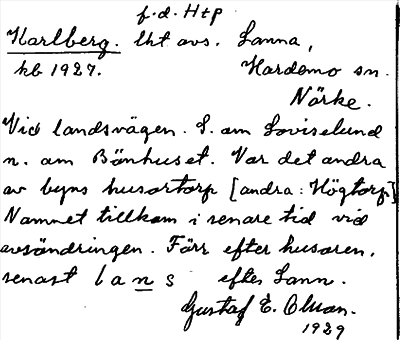 f.d. Htp
Karlberg. lht avs. Lanna,
kb 1927. Hardemo sn.
Närke.
Vid landsvägen. S. om Loviselund
n. om Bönhuset. Var det andra
av byns husartorp [andra: Högtorp]
Namnet tillkom i senare tid vid
avsöndringen. Förr efter husaren,
senast lans efter Lann.
Gustaf E. Olson.
1929